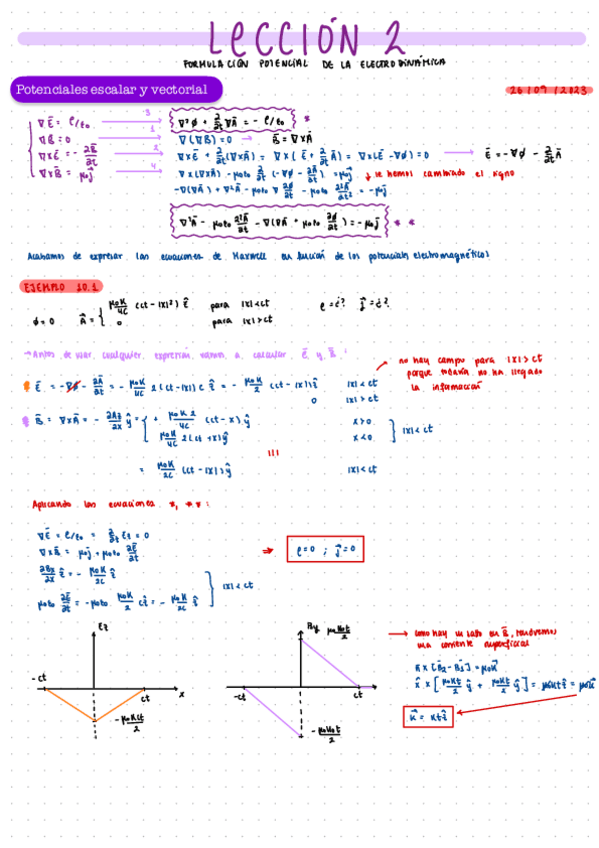 LECCIÓN 2
FORMULACIÓN POTENCIAL DE LA ELECTRODINÁMICA
Potenciales escalar y vectorial
26/09/2023
∇E̅ = ρ/ε₀ → 3 ∇²ϕ + ∂/∂t ∇A̅ = - ρ/ε₀ *
∇B̅ = 0 → 1 ∇(∇B̅) = 0 → B̅ = ∇xA̅
∇xE̅ = - ∂B̅/∂t → 2 ∇xE̅ + ∂/∂t (∇xA̅) = ∇x(E̅ + ∂/∂t A̅) = ∇x(E̅ - ∇ϕ) = 0 → E̅ = -∇ϕ - ∂/∂t A̅
∇xB̅ = μ₀j̅ → 4 ∇x(∇xA̅) - μ₀ε₀ ∂/∂t (-∇ϕ - ∂A̅/∂t) = μ₀j̅ ↓ le hemos cambiado el signo
-∇(∇A̅) + ∇²A̅ - μ₀ε₀ ∇ ∂ϕ/∂t - μ₀ε₀ ∂²A̅/∂t² = -μ₀j̅
∇²A̅ - μ₀ε₀ ∂²A̅/∂t - ∇(∇A̅ + μ₀ε₀ ∂ϕ/∂t) = -μ₀j̅ * *
Acabamos de expresar las ecuaciones de Maxwell en función de los potenciales electromagnéticos
EJEMPLO 10.1
ϕ = 0 A̅ = { μ₀K/4C (ct - |x|²) ẑ para |x| < ct ρ = ¿? j̅ = ¿?
0 para |x| > ct
→ Antes de usar cualquier expresión vamos a calcular E̅ y B̅ :
E̅ = -∇ϕ - ∂A̅/∂t = - μ₀K/4C 2(ct - |x|) c ẑ = - μ₀K/2 (ct - |x|) ẑ |x| < ct
0 |x| > ct
no hay campo para |x| > ct
porque todavía no ha llegado
la información
B̅ = ∇xA̅ = - ∂Az/∂x ŷ = { + μ₀K 2/4C (ct - x) ŷ x > 0
μ₀K/4C 2(ct + x) ŷ x < 0 } |x| < ct
!!!
= μ₀K/2C (ct - |x|) ŷ |x| < ct
Aplicando las ecuaciones *, * * :
∇E̅ = ρ/ε₀ = ∂/∂z Ez = 0
∇xB̅ = μ₀j̅ + μ₀ε₀ ∂E̅/∂t ⇒ ρ = 0 ; j̅ = 0
∂By/∂x ẑ = - μ₀K/2C ẑ
μ₀ε₀ ∂E̅/∂t = -μ₀ε₀ μ₀K/2 cẑ = - μ₀K/2C ẑ } |x| < ct
Ez
-ct
ct
x
- μ₀Kct/2
By
μ₀Kt/2
-ct
ct
- μ₀Kt/2
→ como hay un salto en B̅, tendremos
una corriente superficial
n̅ x [B̅₂ - B̅₁] = μ₀K̅
x̂ x [μ₀Kt/2 ŷ + μ₀Kt/2 ŷ] = μ₀Ktẑ = μ₀K̅
K̅ = Ktẑ